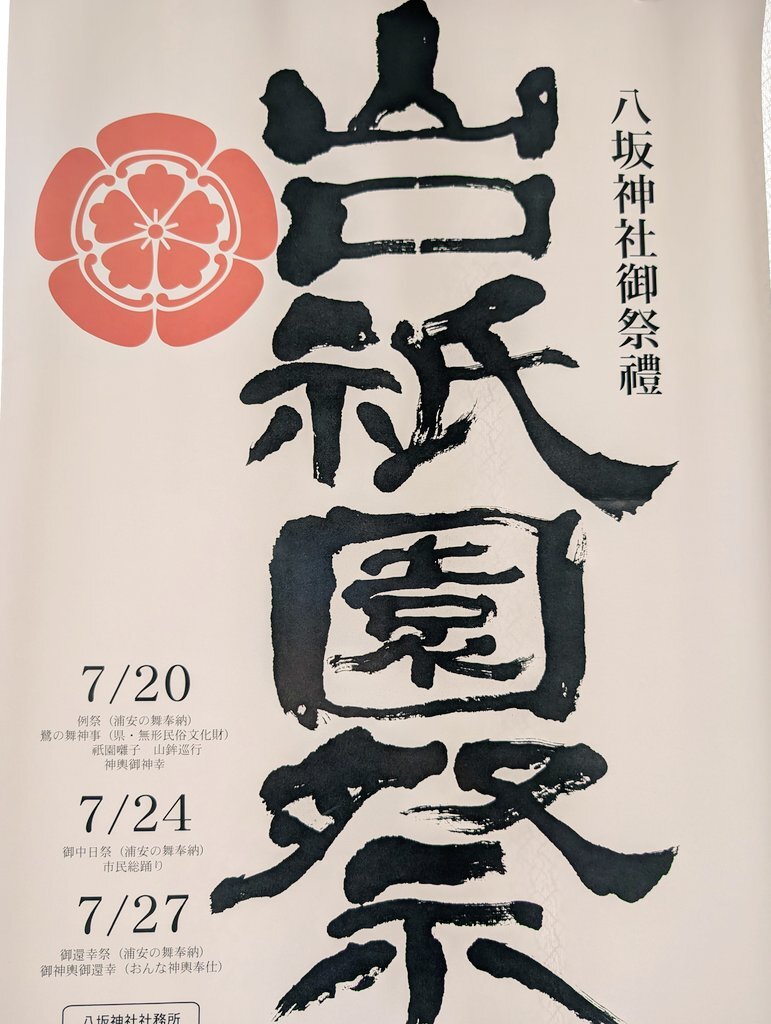 八坂神社御祭禮
山口祇園祭
7/20
例祭（浦安の舞奉納）
鷺の舞神事（県・無形民俗文化財）
祇園囃子　山鉾巡行
神輿御神幸
7/24
御中日祭（浦安の舞奉納）
市民総踊り
7/27
御還幸祭（浦安の舞奉納）
御神輿御還幸（おんな神輿奉仕）
八坂神社社務所